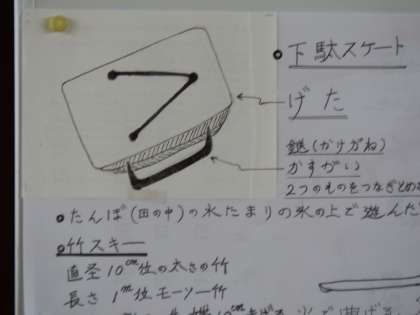 ○下駄スケート
げた
鎹(かけがね)
かすがい
2つのものをつなぎとめ
○たんぼ(田の中)の水たまりの氷の上で遊んだ
○竹スキー
直径10cm位の太さの竹
長さ1m位モーソー竹
10cm